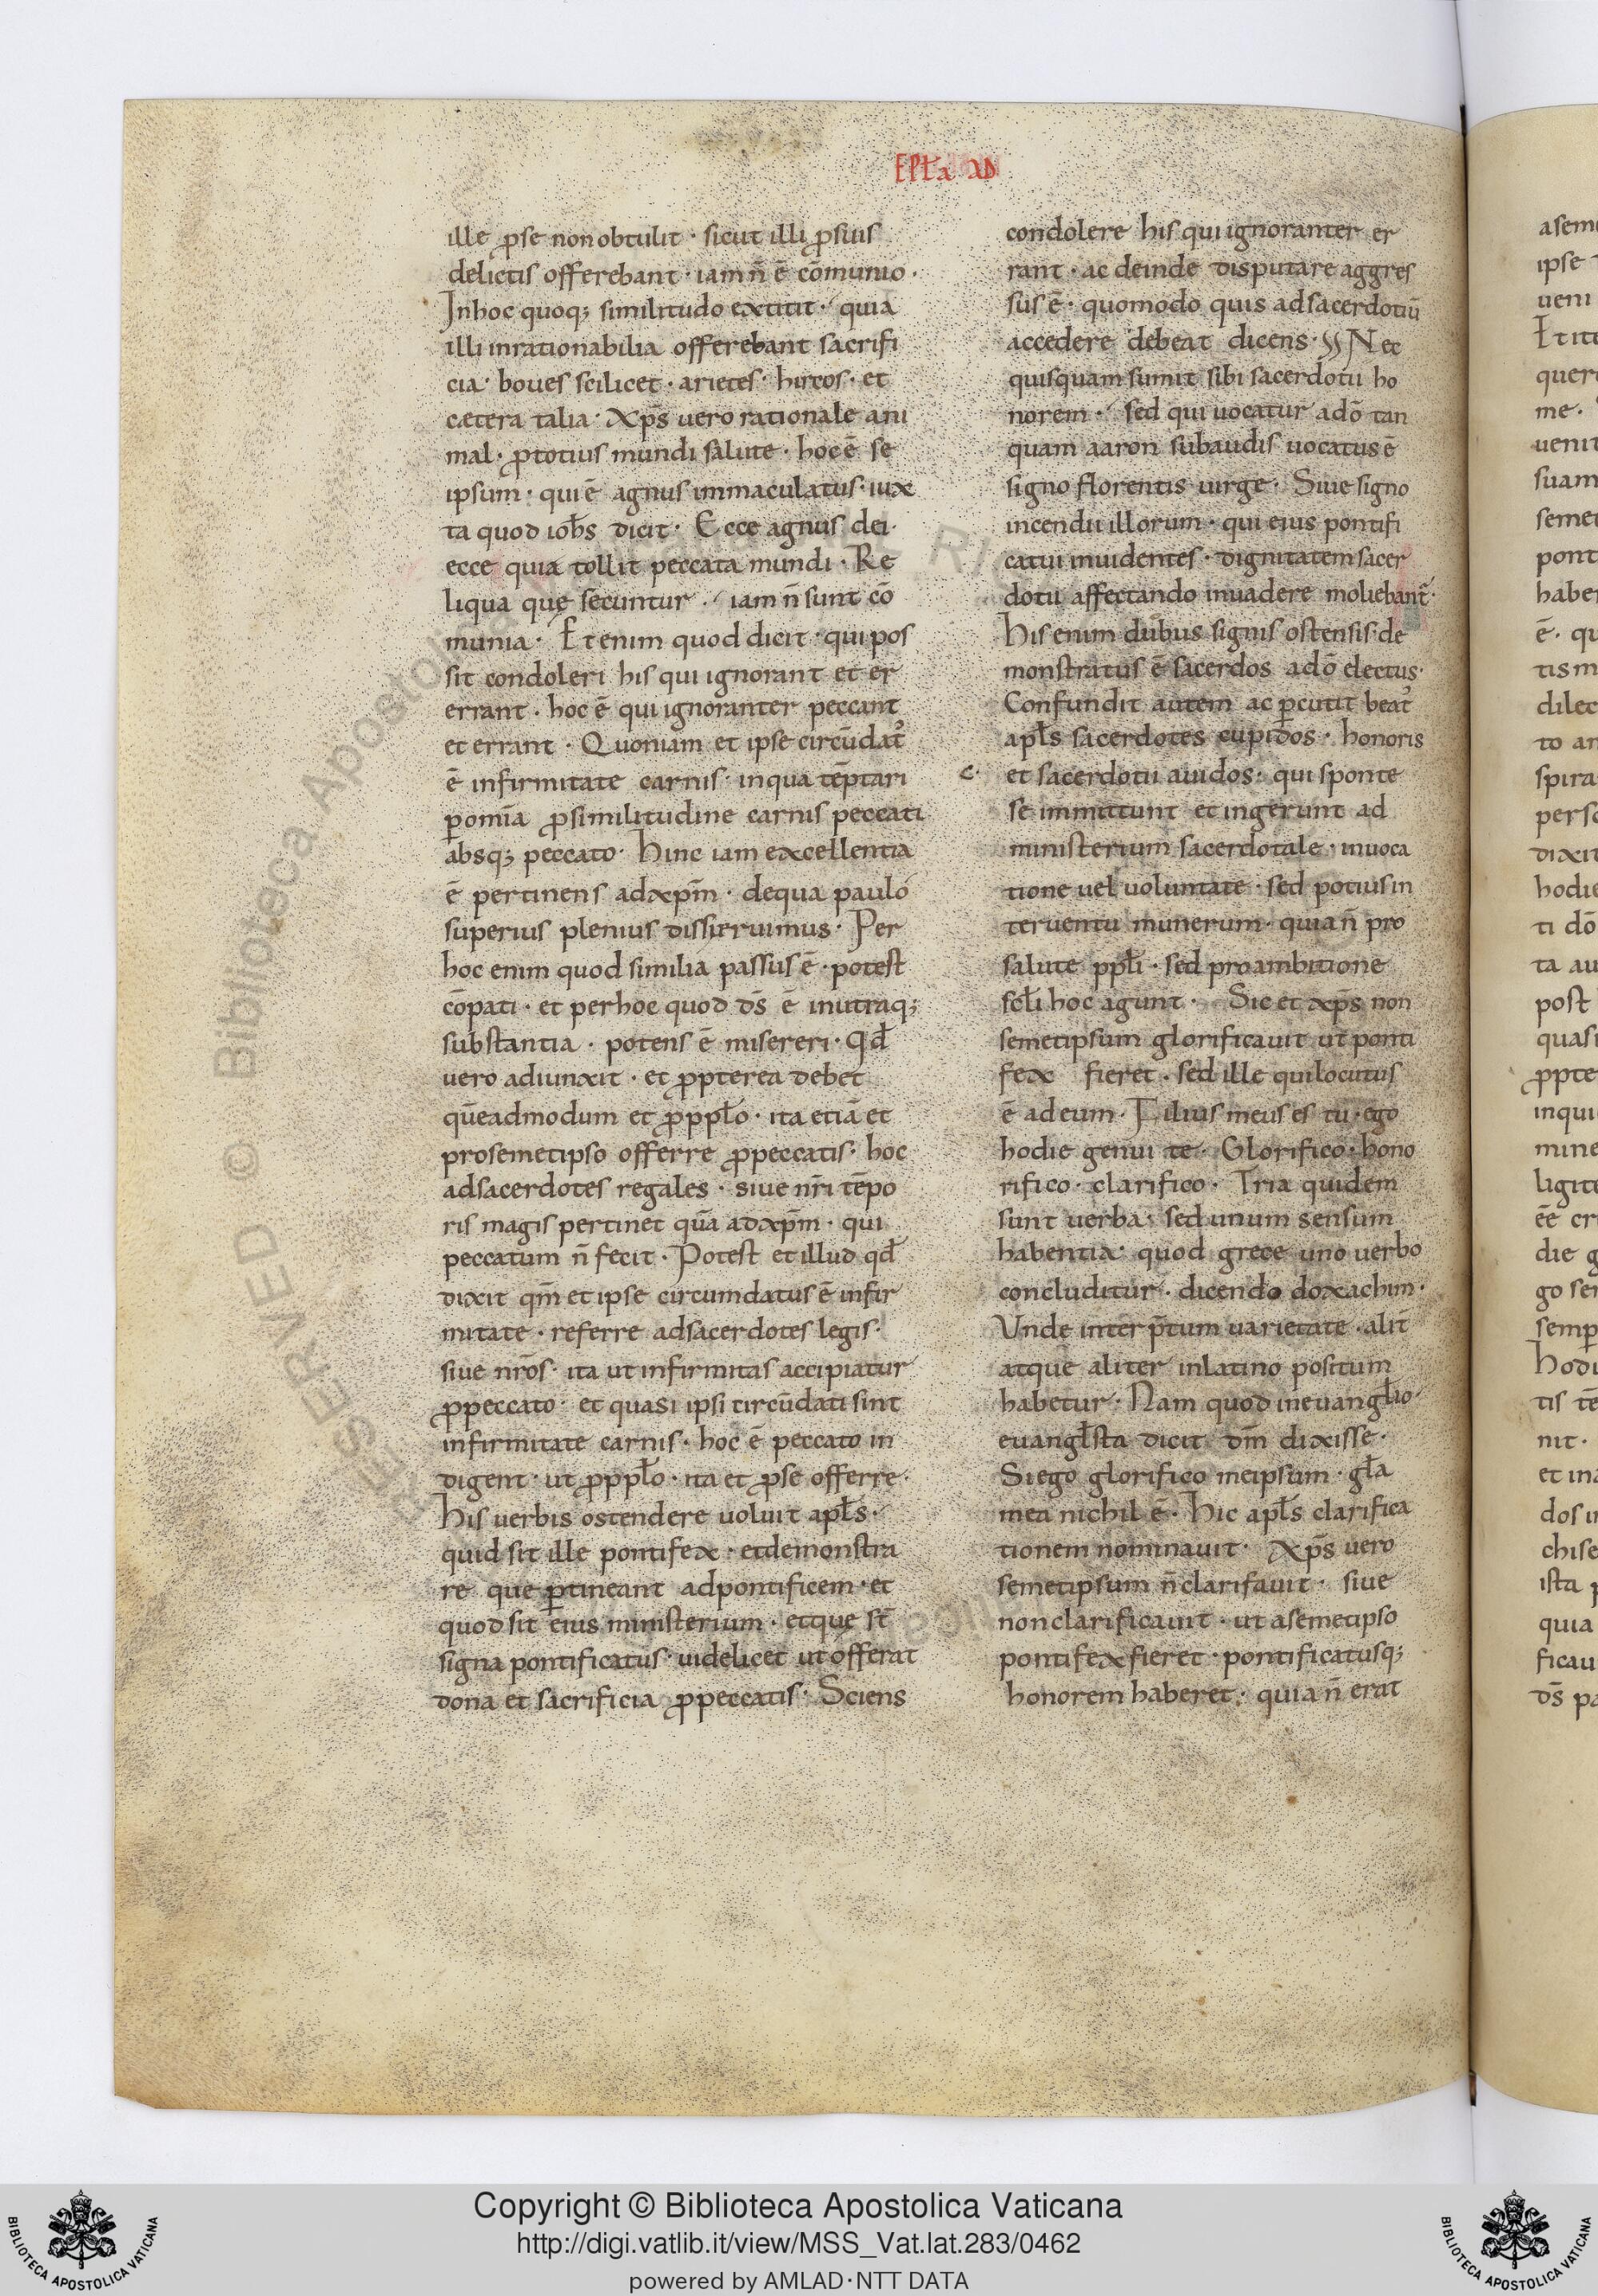 EPLa AD
ille ꝓse non obtulit · sicut illi ꝓsuis
delictis offerebant · iam n̄ ē cōmunio ·
Inhoc quoq; similitudo extitit · quia
illi inrationabilia offerebant sacrifi
cia · boues scilicet · arietes · hircos · et
cætera talia · Xp̄s uero rationale ani
mal · ꝓtotius mundi salute · hoc ē se
ipsum · qui ē agnus immaculatus · iux
ta quod ioh̄s dicit · Ecce agnus dei ·
ecce quia tollit peccata mundi · Re
liqua quę secuntur · iam n̄ sunt cō
munia · Et enim quod dicit · qui pos
sit condoleri his qui ignorant et er
errant · hoc ē qui ignoranter peccant
et errant · Quoniam et ipse circūdat᾽
ē infirmitate carnis · inqua tēptari
ꝑomīa ꝓsimilitudine carnis peccati
absq; peccato · Hinc iam excellentia
ē pertinens adxpm̄ · dequa paulo
superius plenius disseruimus · Per
hoc enim quod similia passus ē · potest
cōpati · et perhoc quod d̄s ē inutraq;
substantia · potens ē misereri · Qđ
uero adiunxit · et ꝓpterea debet
quēadmodum et ꝓppl̄o · ita etiā et
prosemetipso offerre ꝓpeccatis · hoc
adsacerdotes regales · siue nr̄i tēpo
ris magis pertinet quā adxpm̄ · qui
peccatum n̄ fecit · Potest et illud qđ
dixit qm̄ et ipse circumdatus ē infir
mitate · referre adsacerdotes legis ·
siue nr̄os · ita ut infirmitas accipiatur
ꝓpeccato · et quasi ipsi circūdati sint
infirmitate carnis · hoc ē peccato in
digent · ut ꝓppl̄o · ita et ꝓse offerre ·
His uerbis ostendere uoluit apl̄s ·
quid sit ille pontifex · etdemonstra
re que ꝑtineant adpontificem · et
quod sit eius ministerium · etque st̄
signa pontificatus · uidelicet ut offerat
dona et sacrificia ꝓpeccatis · Sciens
condolere his qui ignoranter er
rant · ac deinde disputare aggres
sus ē · quomodo quis adsacerdotiū
accedere debeat dicens · Nec
quisquam sumit sibi sacerdotii ho
norem · sed qui uocatur adō tan
quam aaron subaudis uocatus ē
signo florentis uirge · Siue signo
incendii illorum · qui eius pontifi
catui inuidentes · dignitatem sacer
dotii affectando inuadere moliebant᷑ ·
His enim duobus signis ostensis · de
monstratus ē sacerdos adō electus ·
Confundit autem ac ꝑcutit beat᾽
apl̄s sacerdotes cupidos · honoris
c · et sacerdotii auidos · qui sponte
se immittunt et ingerunt ad
ministerium sacerdotale · inuoca
tione uel uoluntate · sed potius in
teruentu munerum · quia n̄ pro
salute ppl̄i · sed proambitione
scl̄i hoc agunt · Sic et xp̄s non
semetipsum glorificauit ut ponti
fex fieret · sed ille qui locutus
ē ad eum · Filius meus es tu · ego
hodie genui te · Glorifico · hono
rifico · clarifico · Tria quidem
sunt uerba · sed unum sensum
habentia · quod grece uno uerbo
concluditur · dicendo doxachim ·
Vnde inter p̄tum uarietate · alit̄
atque aliter inlatino positum
habetur · Nam quod ineuangl̄io ·
euangl̄sta dicit dm̄ dixisse ·
Si ego glorifico meipsum · gl̄a
mea nichil ē · Hic apl̄s clarifica
tionem nominauit · Xp̄s uero
semetipsum n̄ clarifauit · siue
nonclarificauit · ut asemetipso
pontifex fieret · pontificatusq;
honorem haberet · quia n̄ erat
Copyright © Biblioteca Apostolica Vaticana
http://digi.vatlib.it/view/MSS_Vat.lat.283/0462
powered by AMLAD·NTT DATA